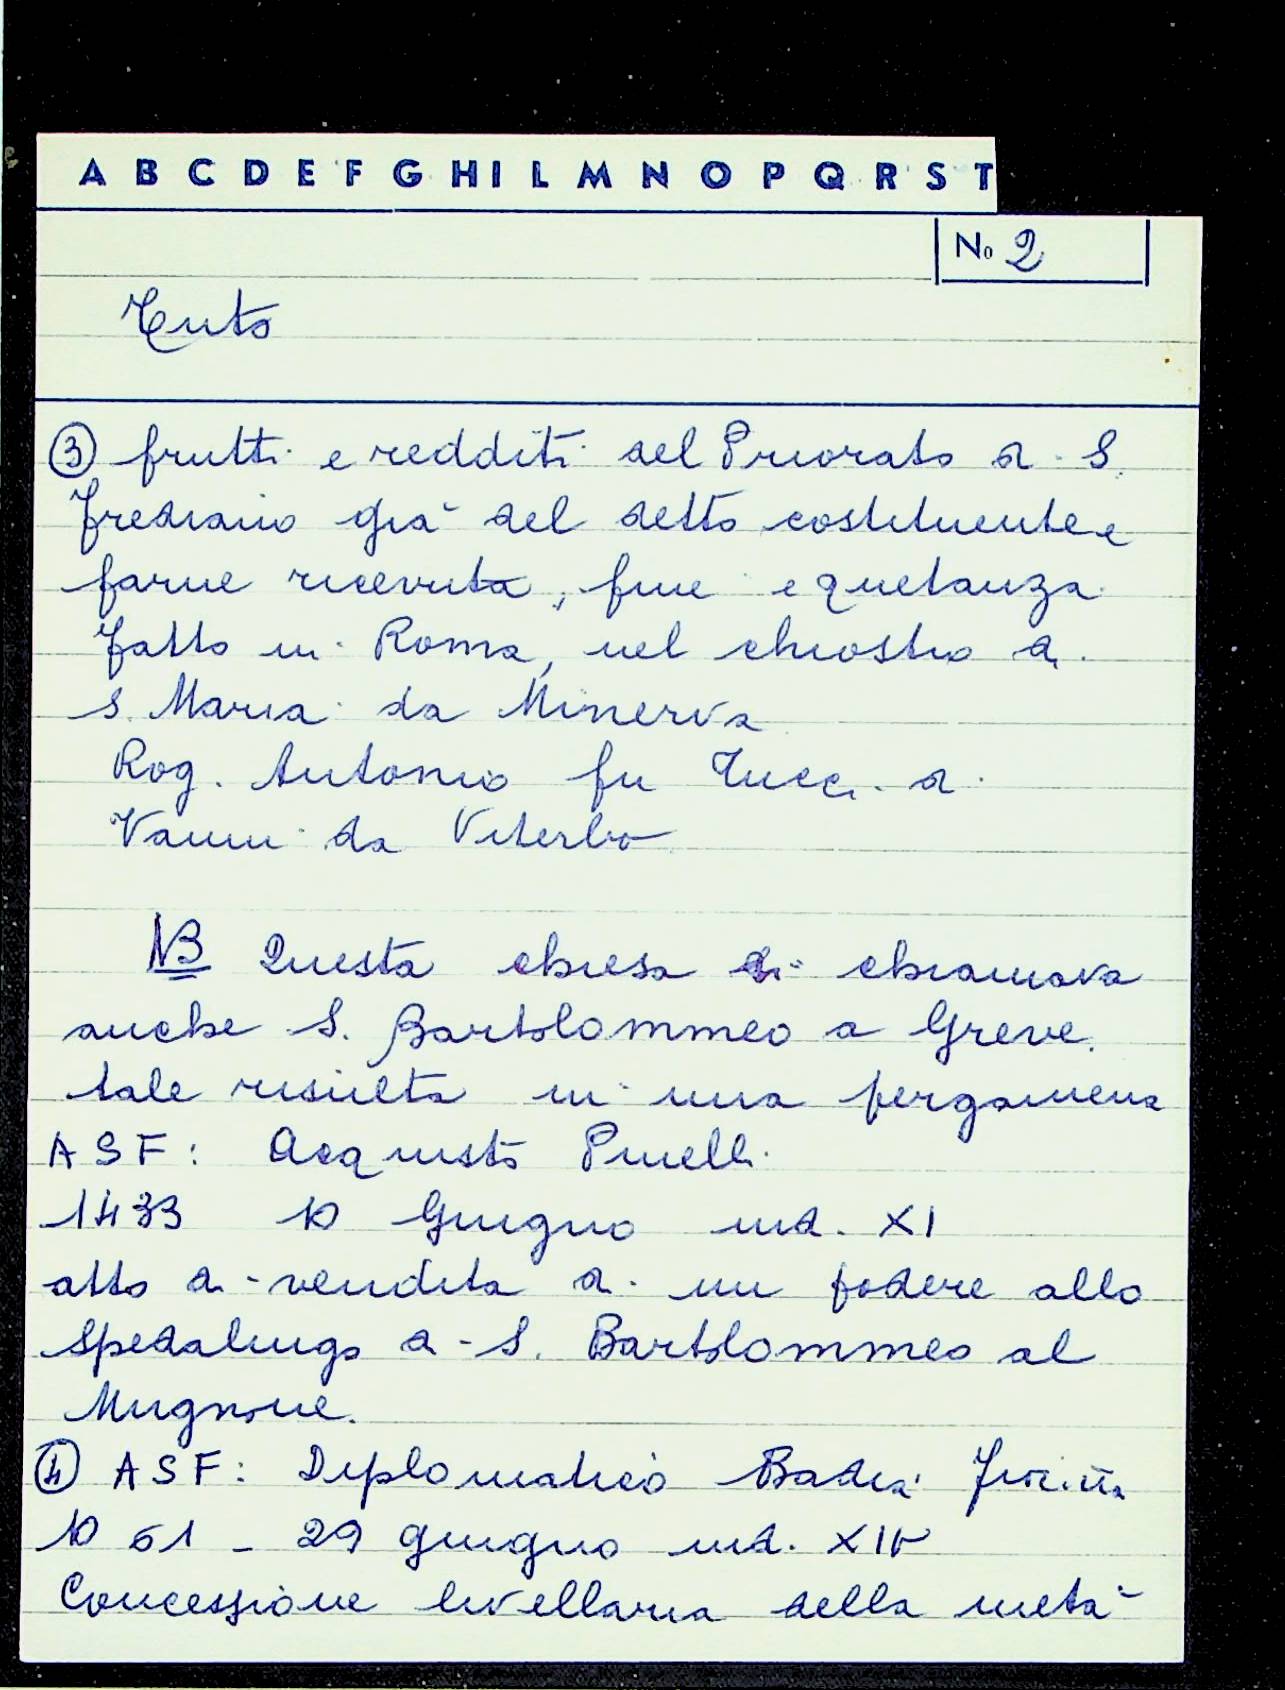 A B C D E F G H I L M N O P Q R S T
No 2
Tuto
3 frutti e redditi del Priorato di S.
Frediano già del detto costituente e
farne ricevuta, fine e quetanza.
Fatto in Roma, nel chiostro di
S. Maria da Minerva
Rog. Antonio fu Tucci di
Vanni da Viterbo
NB Questa chiesa si chiamava
anche S. Bartolommeo a Greve.
tale risulta in una pergamena
ASF: Acquisto Pinelli
1433 10 Giugno ind. XI
atto di vendita di un podere allo
Spedalingo di S. Bartolommeo al
Mugnone.
4 ASF: Diplomatico Badia
1061 - 29 giugno ind. XIV
Concessione livellaria della metà